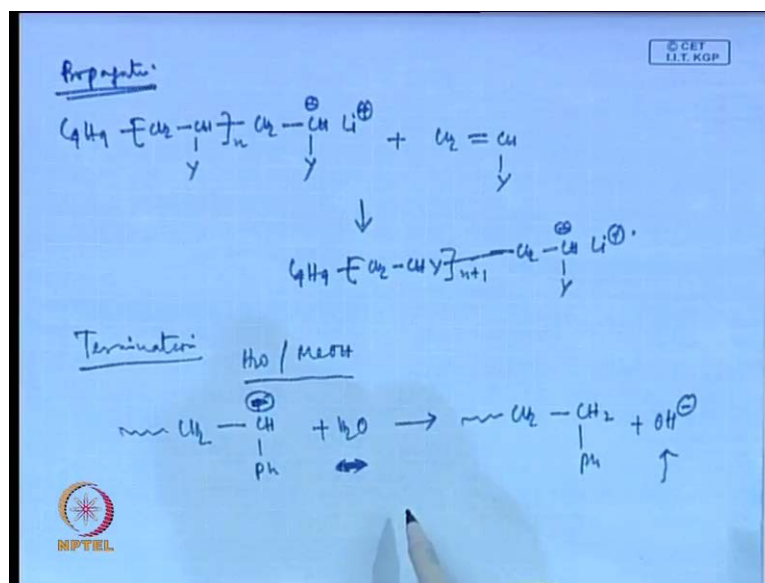 © CET
I.I.T. KGP
Propagation
C4H9 -[CH2 - CH]n CH2 - CH⊖ Li⊕ + CH2 = CH
Y Y Y
↓
C4H9 -[CH2 - CHY]n+1 CH2 - CH⊖ Li⊕.
Y
Termination H2O / MeOH
CH2 - CH⊖ + H2O → CH2 - CH2 + OH⊖
Ph Ph
NPTEL